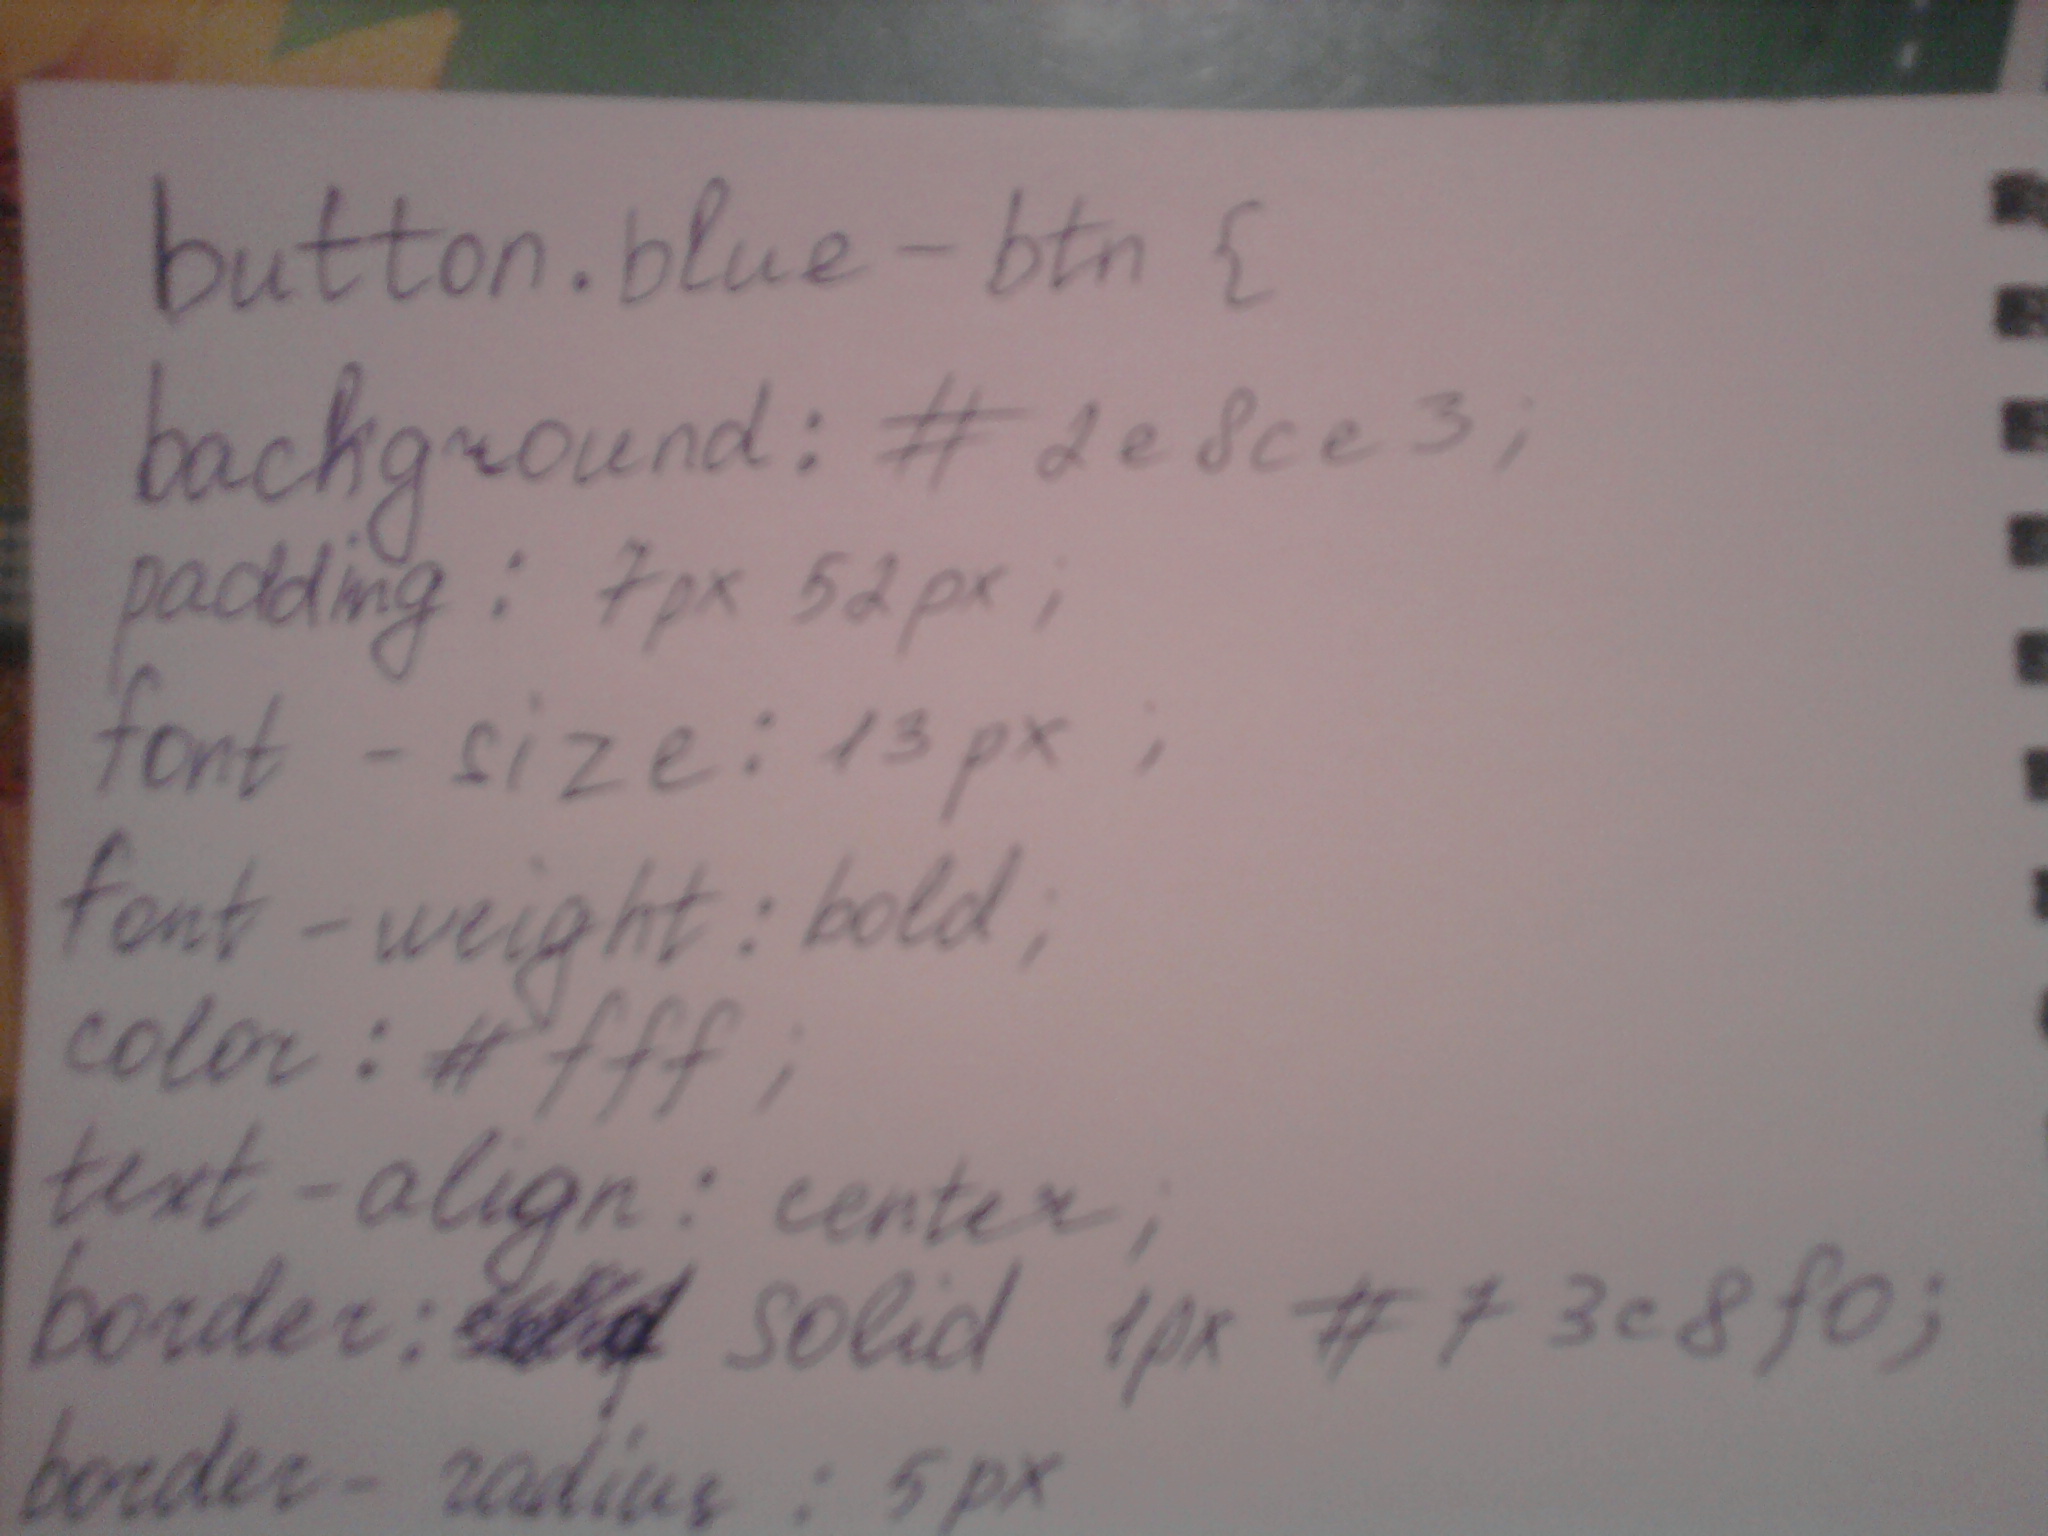 button.blue-btn {
background: #2e8ce3;
padding: 7px 52px;
font-size: 13px;
font-weight: bold;
color: #fff;
text-align: center;
border: solid 1px #73c8f0;
border-radius: 5px